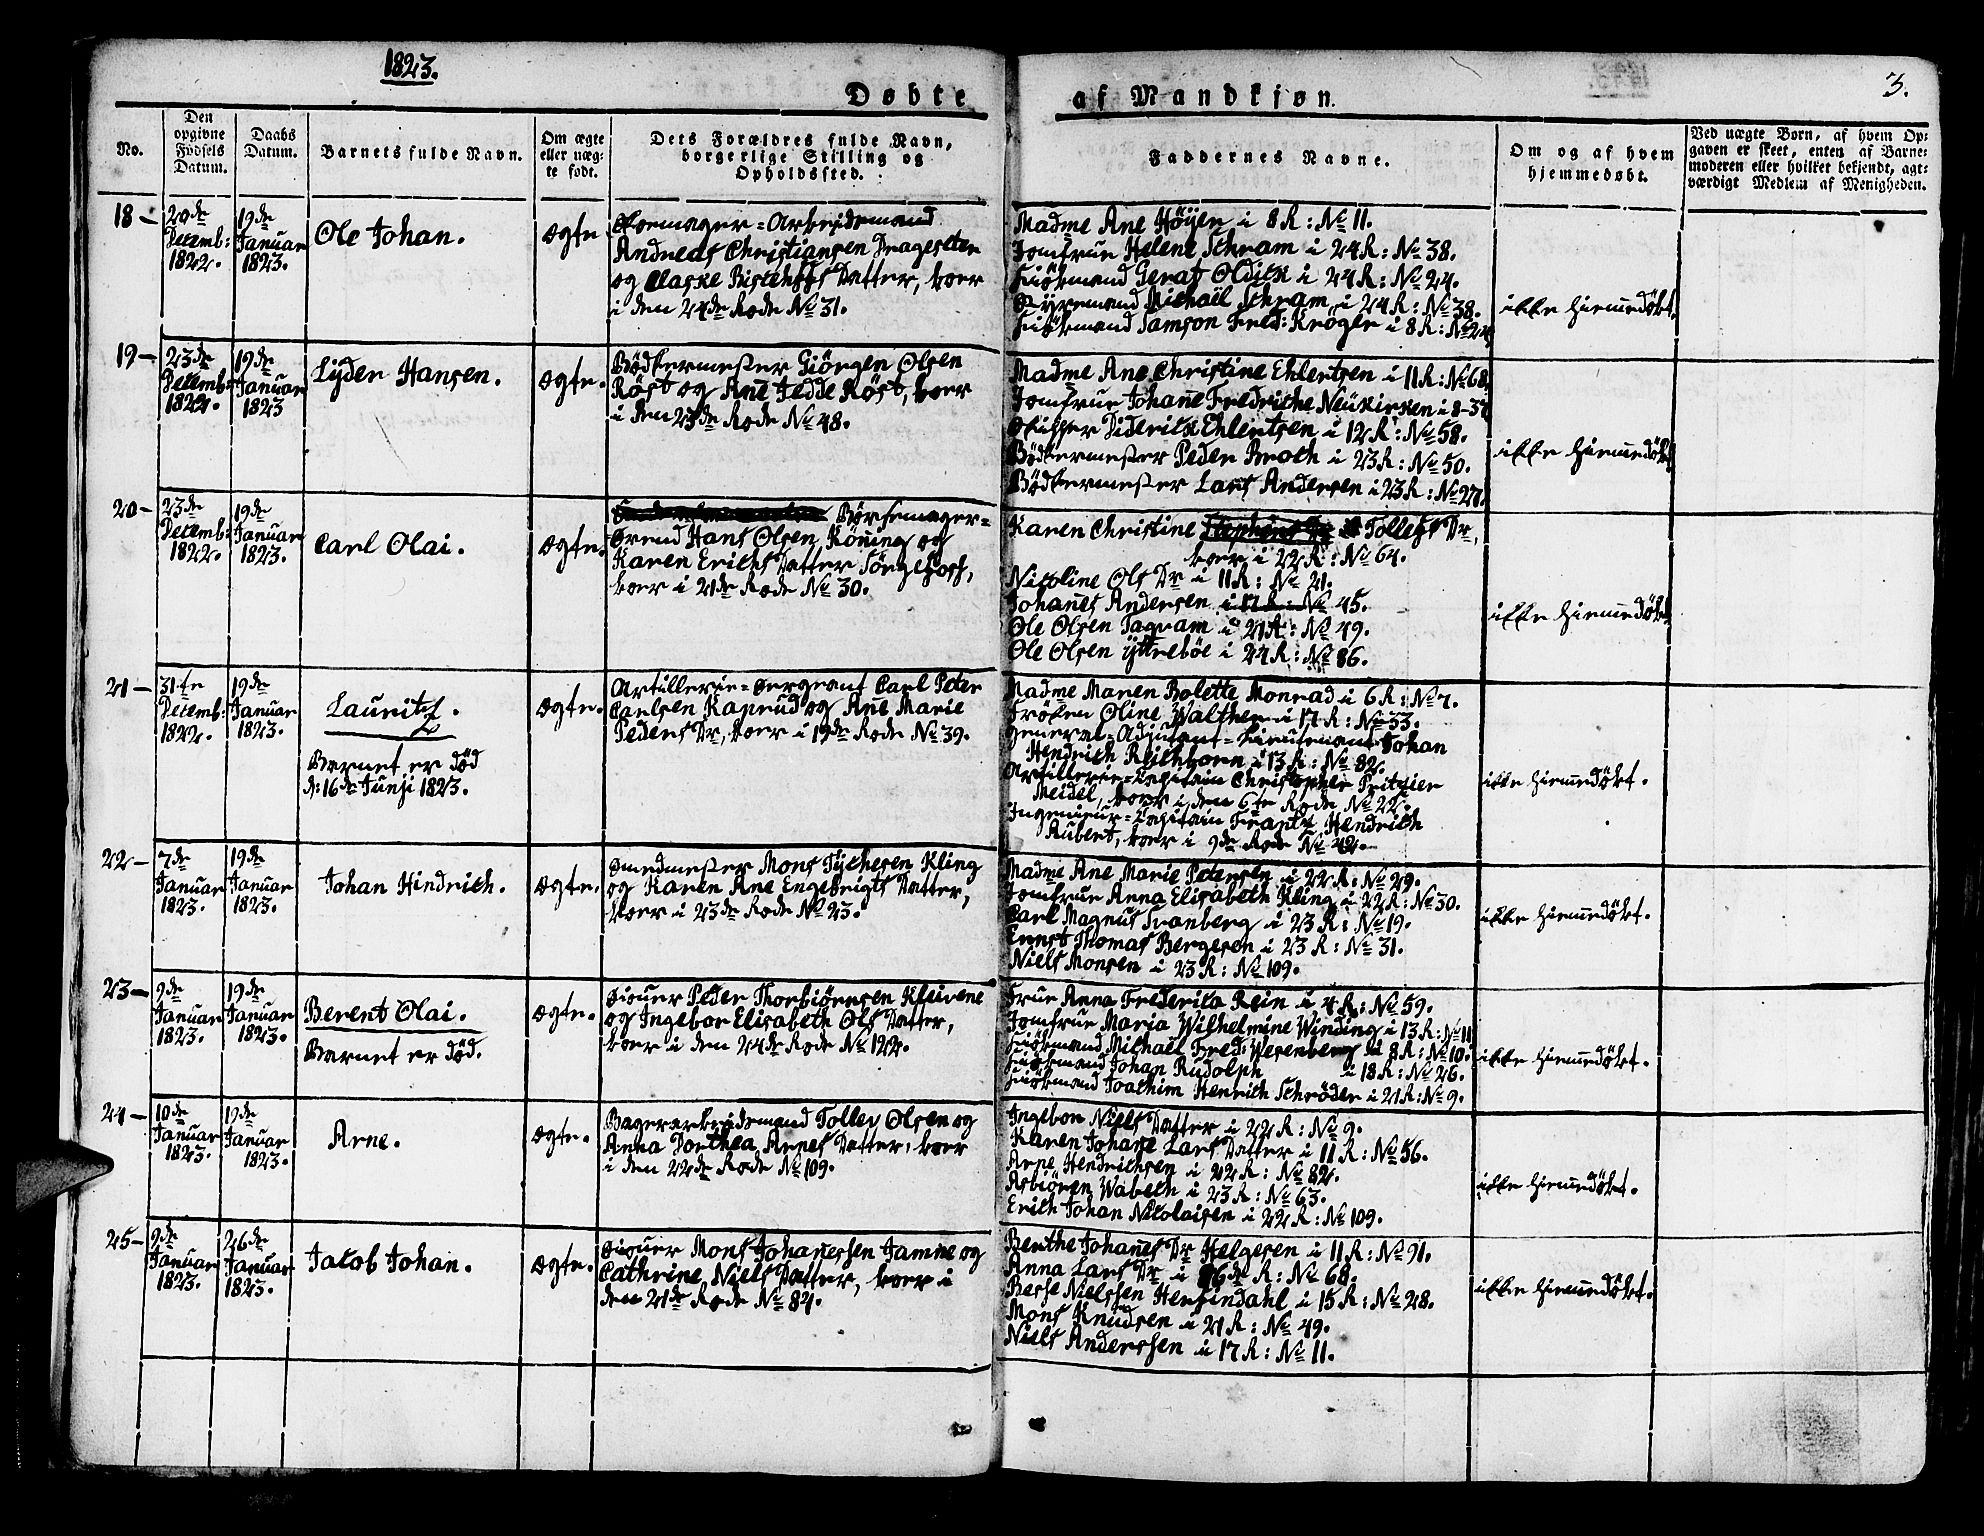 1823.
3.
Døbte af Mandkjøn.
No.
Den opgivne Fødsels Datum.
Daabs Datum.
Barnets fulde Navn.
Om ægte eller uægte født.
Dets Forældres fulde Navn, borgerlige Stilling og Opholdssted.
Faddernes Navne.
Om og af hvem hjemmedøbt.
Ved uægte Børn, af hvem Opgaven er skeet, enten af Barnemoderen eller hvilket bekjendt, agtværdigt Medlem af Menigheden.
18-
20de Decemb: 1822.
19de Januar 1823.
Ole Johan.
Ægte.
Skomager-Arbeidsmand
Andreas Christiansen Drageseter
og Claske Bischoffs Datter, boer
i den 24de Rode No 31.
Madme Ane Höÿer i 8 R: No 11.
Jomfrue Helene Schram i 24 R: No 38.
Kiöbmand Gerat Oldick i 24 R: No 24.
Styrmand Michaël Schram i 24 R: No 38.
Kiöbmand Samson Fred: Kröger i 8 R: No 24
ikke hiemmedöbt.
19-
23de Decemb: 1822.
19de Januar 1823
Lÿder Hansen.
Ægte.
Bödkermester Giörgen Olsen
Röst og Ane Jedde Röst, boer
i den 23de Rode No 48.
Madme Ane Christine Ehlertsen i 11 R: No 68.
Jomfrue Johane Fredriche Neükirken i 8-37
Skipper Diderik Ehlertsen i 12 R: No 58.
Bödkermester Peder Broch i 23 R: No 50.
Bödkermester Lars Andersen i 23 R: No 27.
ikke hiemmedöbt.
20-
23de Decemb: 1822.
19de Januar 1823.
Carl Olai.
Ægte.
Börsemager-
Svend Hans Olsen Köning og
Karen Erichs Datter Törgefoss,
boer i 21de Rode No 30.
Karen Christine Tollefs Dr,
boer i 22 R: No 64.
Nicoline Ols Dr i 11 R: No 21.
Johanes Andersen i 17 R: No 45.
Ole Olsen Tagram i 21 R: No 49.
Ole Olsen Ÿttrebøe i 24 R: No 86.
ikke hiemmedöbt.
21-
31te Decemb: 1822.
19de Januar 1823.
Lauritz.
Barnet er död
d: 16de Junji 1823.
Ægte.
Artillerie-Sergeant Carl Peter
Carlsen Kaprud og Ane Marie
Peders Dr, boer i 19de Rode No 39.
Madme Maren Bolette Monrad i 6 R: No 7.
Fröken Oline Walther i 17 R: No 33.
General-Adjutant-Lieutenant Johan
Hendrich Reichborn i 13 R: No 82.
Artillerie-Capitain Christopher Pritzier
Meidel, boer i den 6te Rode No 22.
Ingenieur-Capitain Frantz Hendrich
Aubert, boer i 9de Rode No 42.
ikke hiemmedöbt.
22-
7de Januar 1823.
19de Januar 1823.
Johan Hindrich.
Ægte.
Smedmester Mons Tÿchesen Kling
og Karen Ane Engebrigts Datter,
boer i 23de Rode No 23.
Madme Ane Marie Petersen i 22 R: No 29.
Jomfrue Anna Elisabeth Kling i 22 R: No 30.
Carl Magnus Svanberg i 23 R: No 19.
Ernst Thomas Bergesen i 23 R: No 31.
Niels Monsen i 23 R: No 109.
ikke hiemmedöbt.
23-
9de Januar 1823.
19de Januar 1823.
Berent Olai.
Barnet er död.
Ægte.
Siouer Peder Thorbiörnsen Kleivene
og Ingebor Elisabeth Ols Datter,
boer i den 24de Rode No 122.
Frue Anna Frederika Rein i 4 R: No 59.
Jomfrue Maria Wilhelmine Winding i 13 R: No 11
Kiöbmand Michaël Fred: Wesenberg i 8 R: No 10.
Kiöbmand Johan Rudolph i 18 R: No 26.
Kiöbmand Joachim Henrich Schröder i 21 R: No 9.
ikke hiemmedöbt.
24-
10de Januar 1823.
19de Januar 1823.
Arne.
Ægte.
Bagerarbeidsmand Tollev Olsen og
Anna Dorthea Arnes Datter, boer
i den 22de Rode No 109.
Ingebor Niels Datter i 22 R: No 9.
Karen Johane Lars Datter i 11 R: No 56.
Arne Hendrichsen i 22 R: No 82.
Asbiören Wabeck i 23 R: No 63.
Erich Johan Nicolaisen i 22 R: No 109.
ikke hiemmedöbt.
25-
9de Januar 1823.
26de Januar 1823.
Jacob Johan.
Ægte.
Siouer Mons Johanessen Jamne og
Cathrine Niels Datter, boer i
den 21de Rode No 84.
Berthe Johanes Dr Helgesen i 11 R: No 91.
Anna Lars Dr i 6de R: No 68.
Berse Nielssen Henrindahl i 15 R: No 28.
Mons Knudsen i 21 R: No 49.
Niels Anderssen i 17 R: No 11.
ikke hiemmedöbt.